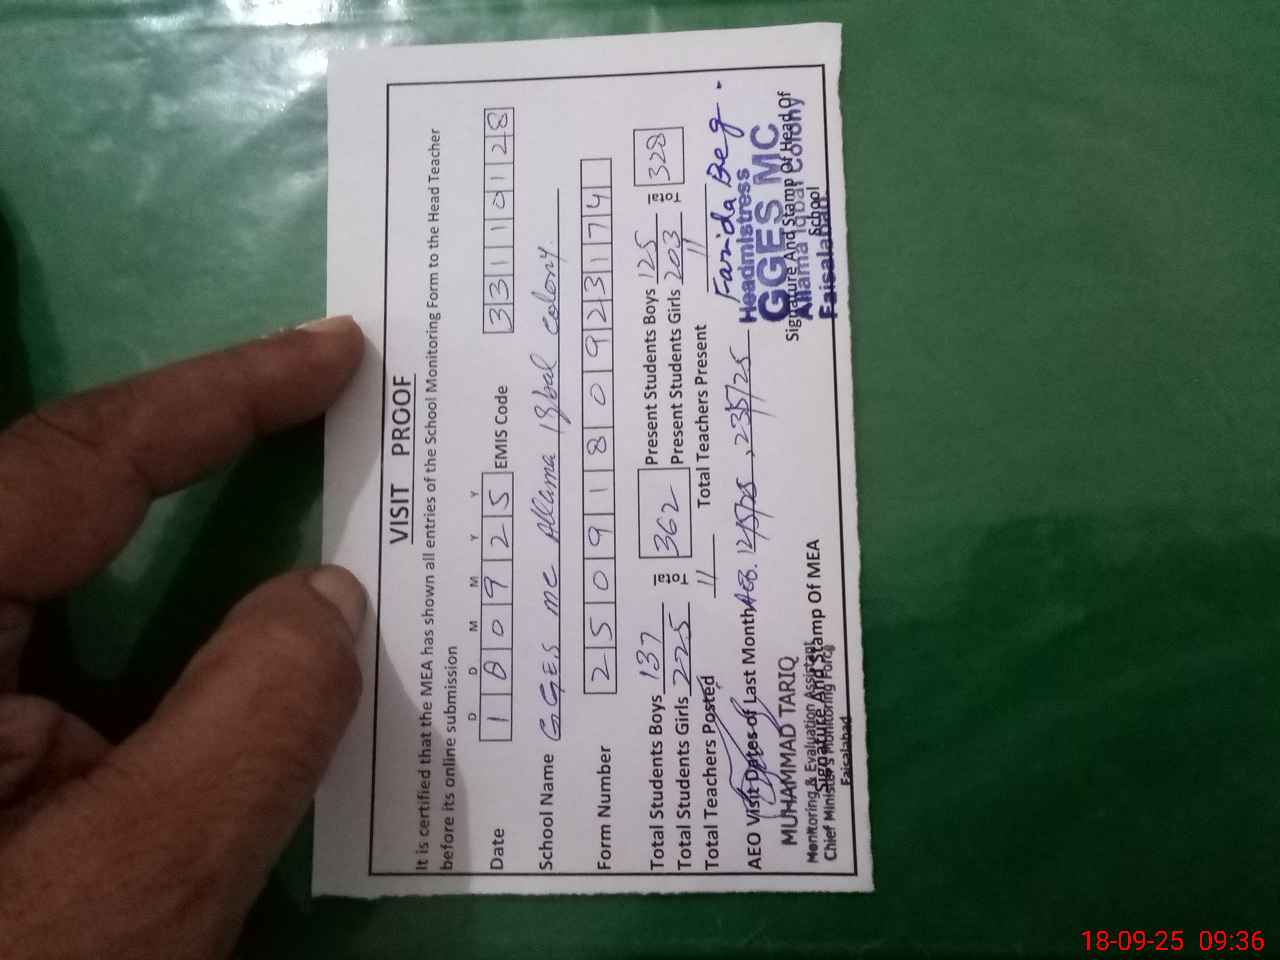 VISIT PROOF
It is certified that the MEA has shown all entries of the School Monitoring Form to the Head Teacher
before its online submission
D D M M Y Y
Date 1 8 0 9 2 5 EMIS Code 3 3 1 1 0 1 2 8
School Name GGES MC Allama Iqbal colony.
Form Number 2 5 0 9 1 8 0 9 2 3 1 7 4
Total Students Boys 137 Total 362 Present Students Boys 125 Total 328
Total Students Girls 225 Present Students Girls 203
Total Teachers Posted 11 Total Teachers Present 11
AEO Visit Dates of Last Month
Farida Beg.
Headmistress
GGES MC
Allama Iqbal Colony
Faisalabad
Signature And Stamp Of Head Of
School
MUHAMMAD TARIQ
Monitoring & Evaluation Assistant
Chief Minister's Monitoring Force
Faisalabad
Signature And Stamp Of MEA
18-09-25 09:36